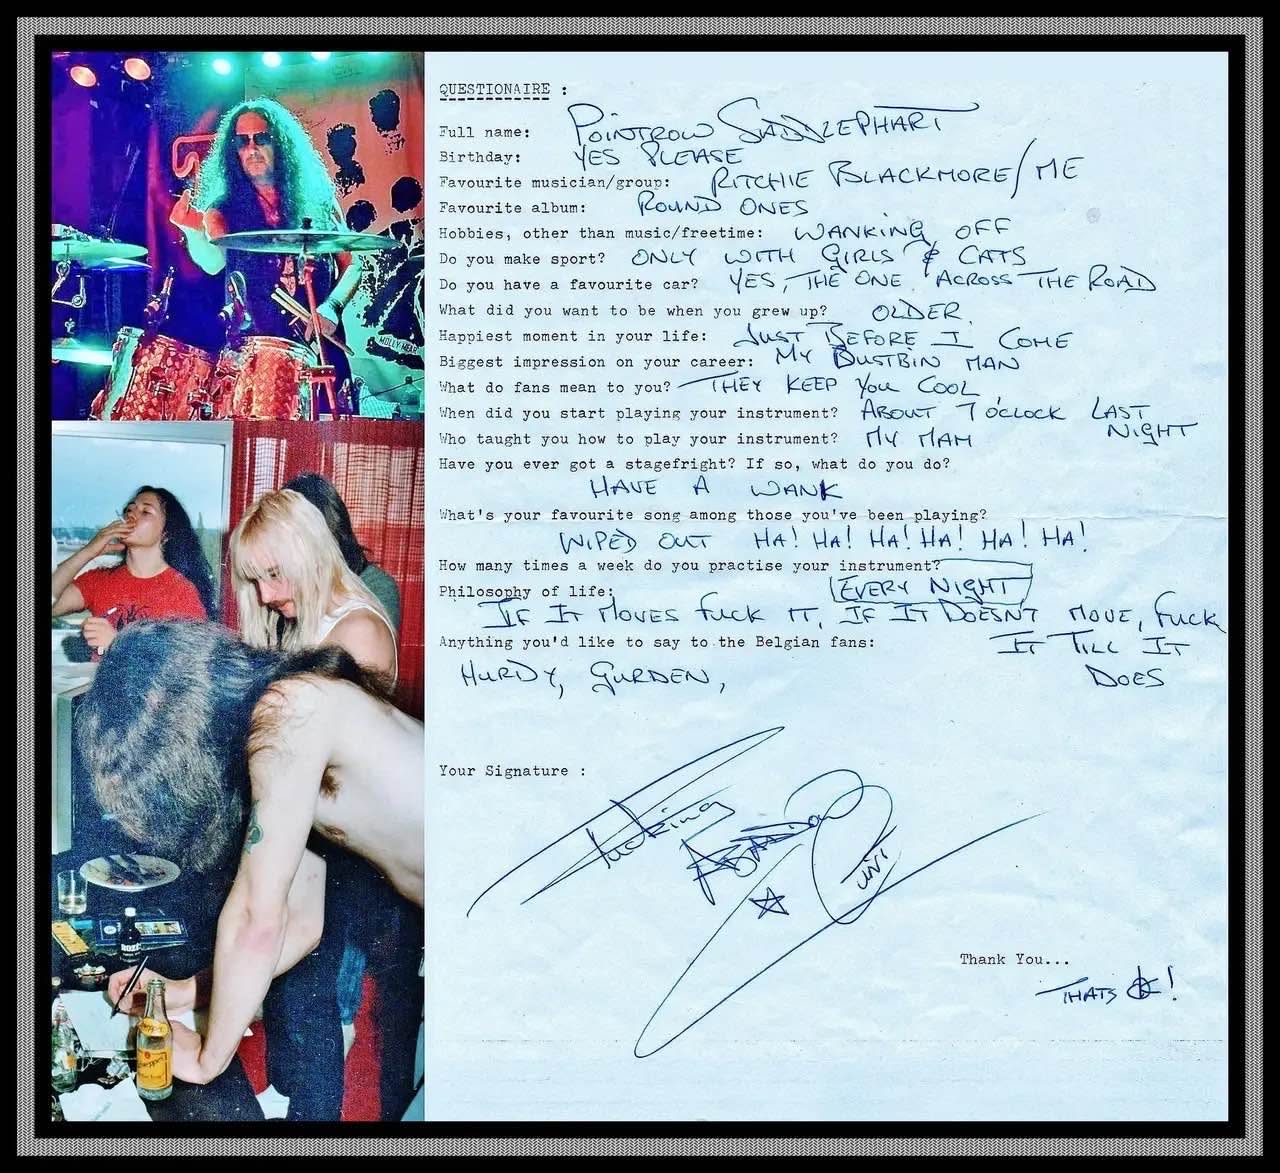 MOLLY MEAR
QUESTIONAIRE :
Full name: POINTROW SADDLEPHART
Birthday: YES PLEASE
Favourite musician/group: RITCHIE BLACKMORE/ME
Favourite album: ROUND ONES
Hobbies, other than music/freetime: WANKING OFF
Do you make sport? ONLY WITH GIRLS & CATS
Do you have a favourite car? YES, THE ONE ACROSS THE ROAD
What did you want to be when you grew up? OLDER.
Happiest moment in your life: JUST BEFORE I COME
Biggest impression on your career: MY DUSTBIN MAN
What do fans mean to you? THEY KEEP YOU COOL
When did you start playing your instrument? ABOUT 7 O'CLOCK LAST
NIGHT
Who taught you how to play your instrument? MY MAM
Have you ever got a stagefright? If so, what do you do?
HAVE A WANK
What's your favourite song among those you've been playing?
WIPED OUT HA! HA! HA! HA! HA! HA!
How many times a week do you practise your instrument?
EVERY NIGHT
Philosophy of life:
IF IT MOVES FUCK IT, IF IT DOESNT MOVE, FUCK
IT TILL IT
DOES
Anything you'd like to say to the Belgian fans:
HURDY, GURDEN,
Your Signature :
Fucking
Thank You...
THATS OK!